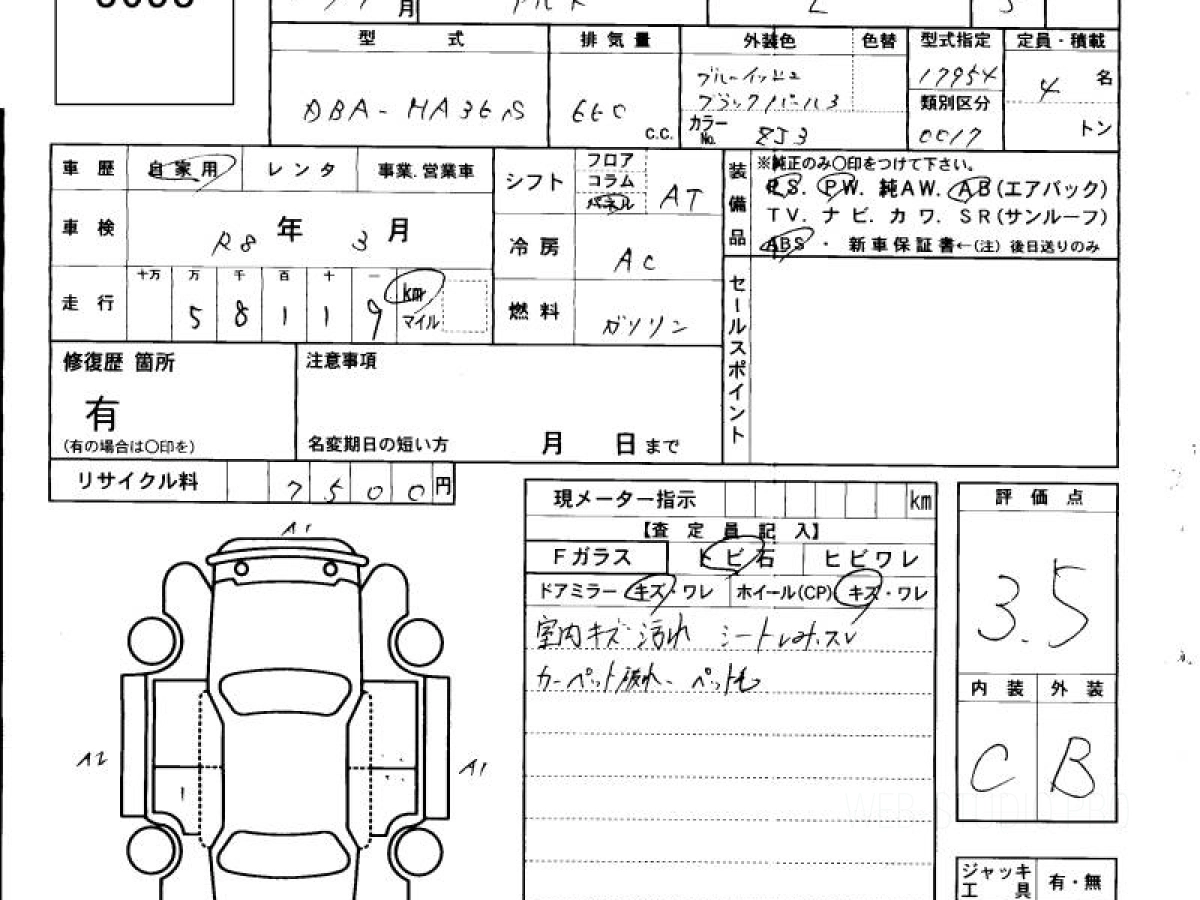 月 アルト L 5
型式 排気量 外装色 色替 型式指定 定員・積載
DBA-HA36S 660 c.c.
ブルーイッシュ
ブラックパール3
カラーNo. ZJ3
17954
類別区分
0017
4 名
トン
車歴 自家用 レンタ 事業.営業車
車検 R8年 3月
走行 十万 万 千 百 十 一
5 8 1 1 9 km
マイル
シフト フロア コラム パネル AT
冷房 AC
燃料 ガソリン
装備品
※純正のみ〇印をつけて下さい。
P.S. PW. 純AW. AB(エアバック)
TV. ナビ. カワ. SR(サンルーフ)
ABS ・ 新車保証書←(注) 後日送りのみ
セールスポイント
修復歴 箇所
有
(有の場合は〇印を)
注意事項
名変期日の短い方 月 日まで
リサイクル料 7500円
現メーター指示 km
【査定員記入】
Fガラス トビ石 ヒビワレ
ドアミラー キズ・ワレ ホイール(CP) キズ・ワレ
室内キズ 汚れ シート
カーペット ペット毛
評価点
3.5
内装 外装
C B
A1
A2
A1
ジャッキ
工具
有・無